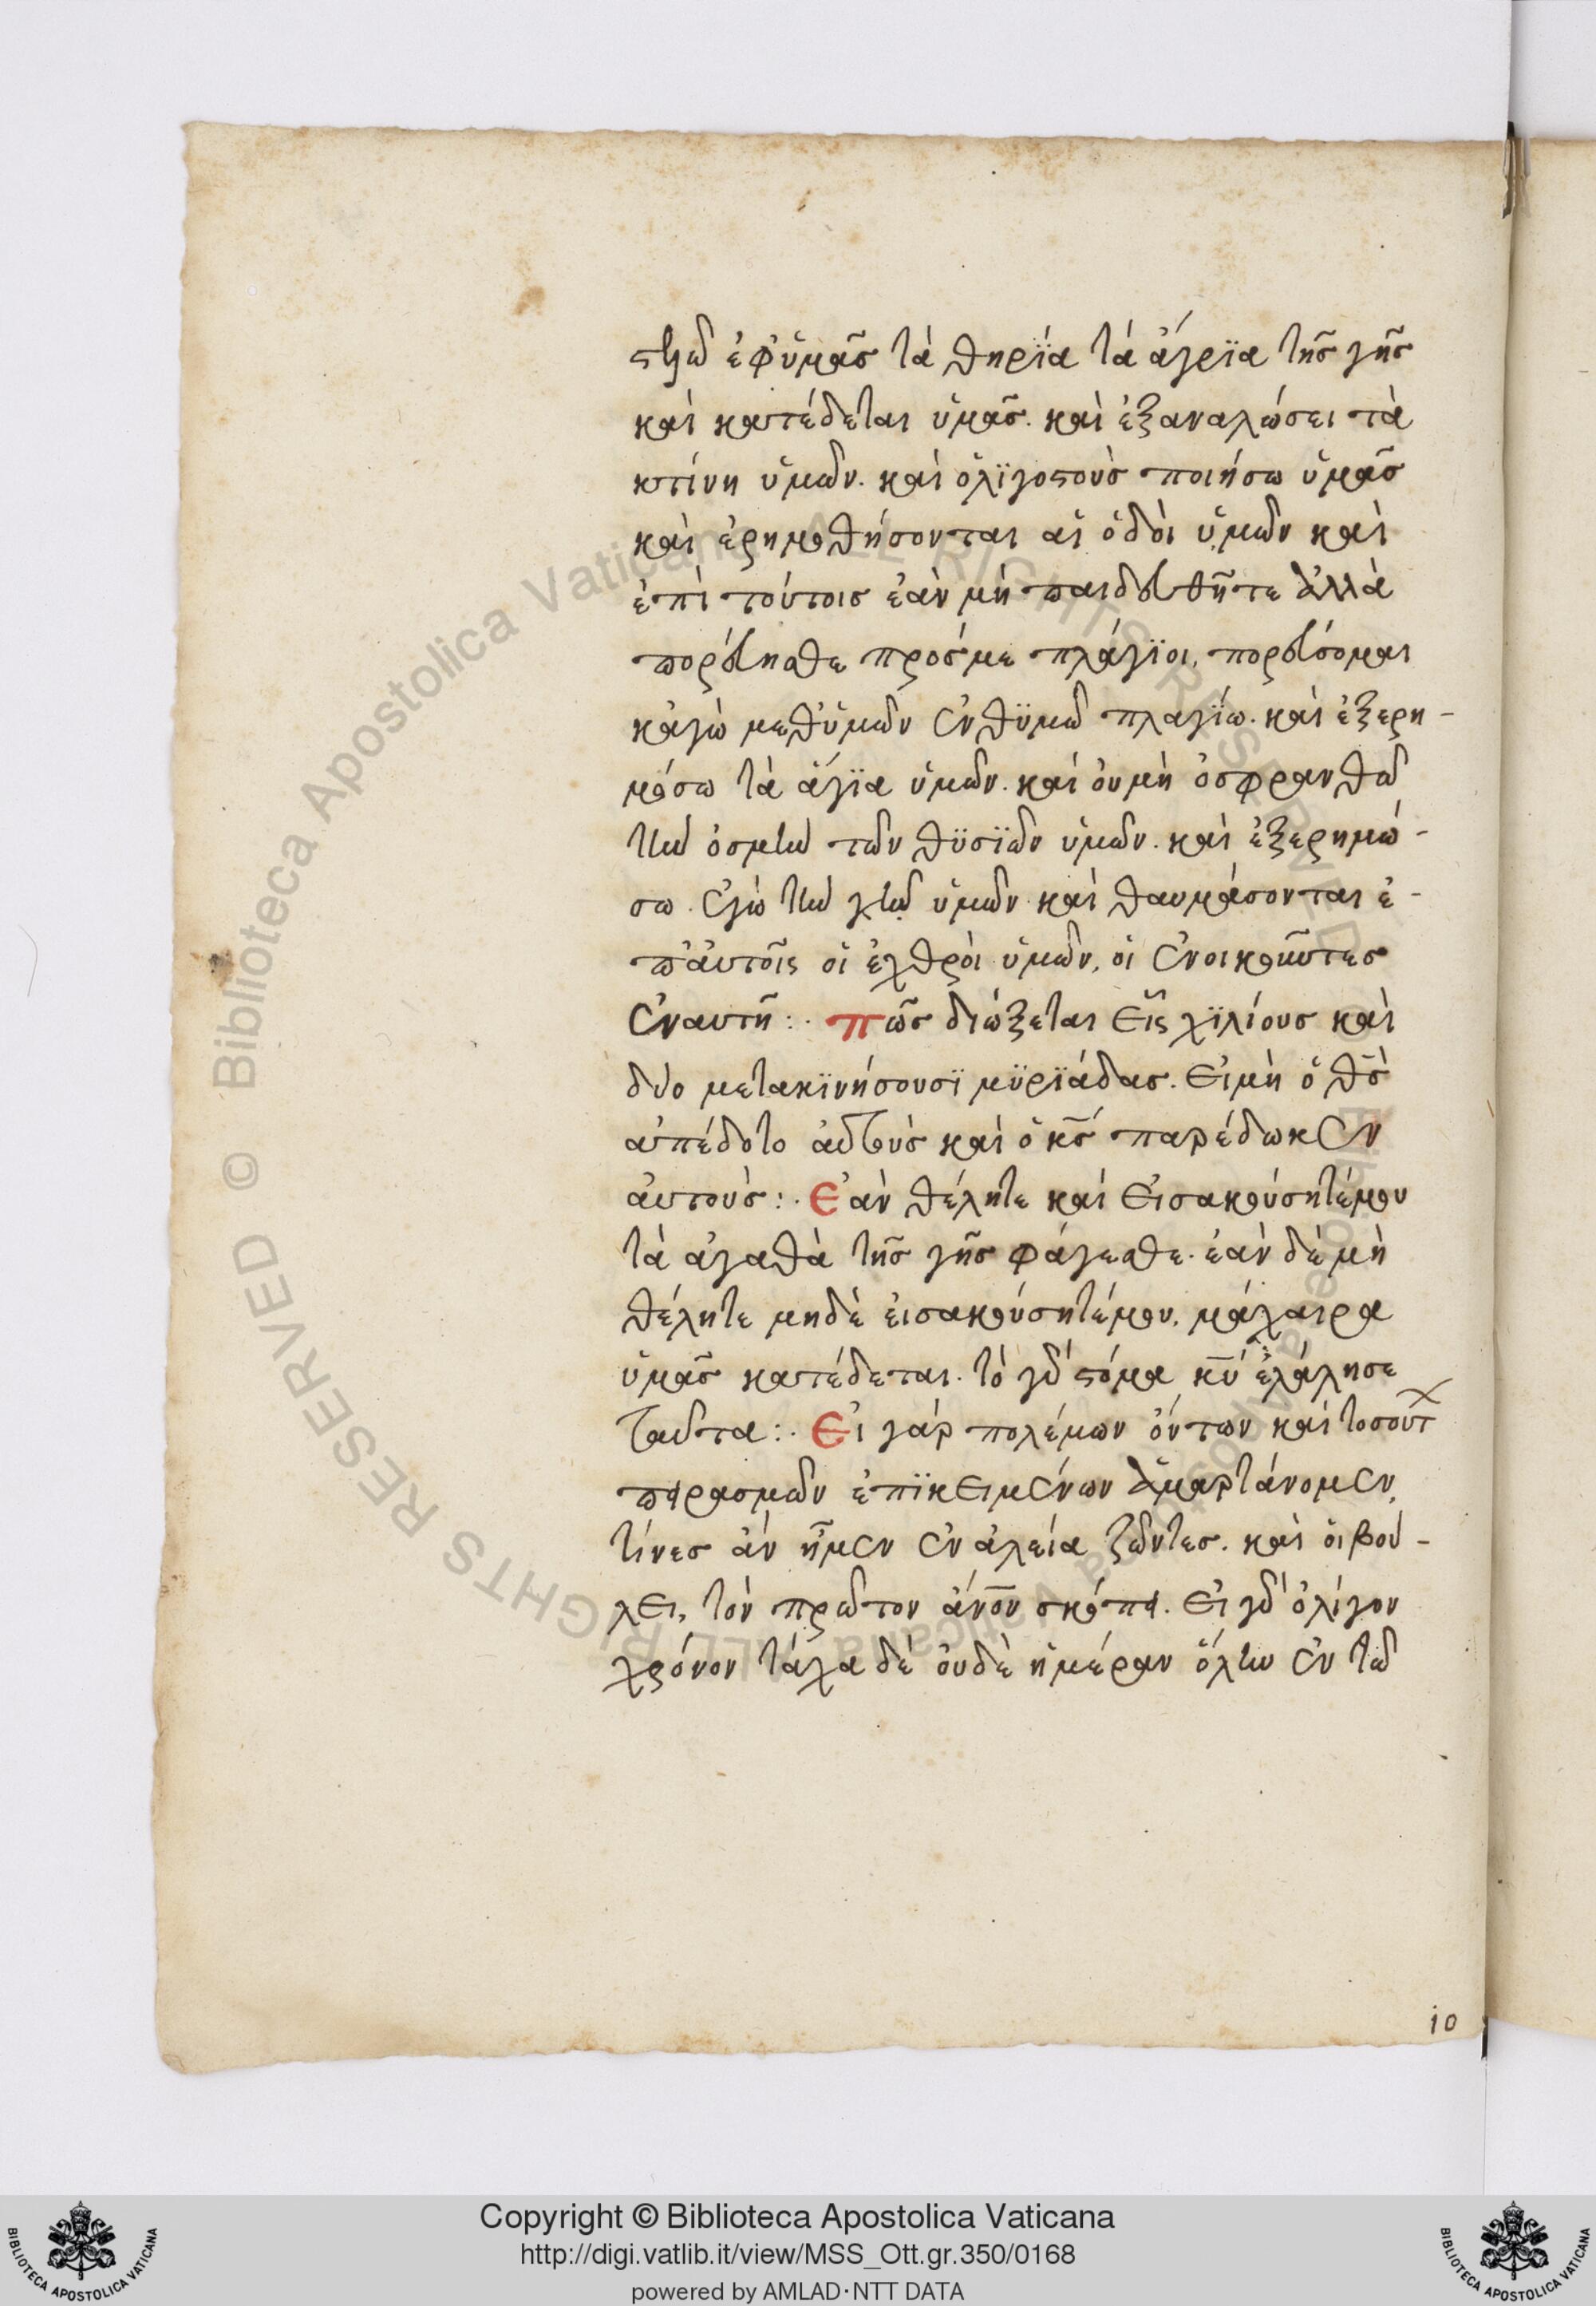 στελῶ ἐφ' ὑμᾶς τὰ θηρΐα τὰ ἄγρϊα τῆς γῆς
καὶ κατέδεται ὑμᾶς. καὶ ἐξαναλώσει τὰ
κτίνη ὑμῶν. καὶ ὀλϊγοστοὺς ποιήσω ὑμᾶς
καὶ ἐρημωθήσονται αἱ ὁδοὶ ὑμῶν καὶ
ἐπὶ τούτοις ἐὰν μὴ παιδευθῆτε ἀλλὰ
πορεύησθε πρός με πλάγϊοι, πορεύσομαι
κἀγὼ μεθ' ὑμῶν ἐν θϋμῶ πλαγΐω. καὶ ἐξερη-
μώσω τὰ ἅγϊα ὑμῶν. καὶ οὐ μὴ ὀσφρανθῶ
τὴν ὀσμὴν τῶν θϋσϊῶν ὑμῶν. καὶ ἐξερημώ-
σω. ἐγὼ τὴν γῆν ὑμῶν καὶ θαυμάσονται ἐ-
π' αὐτοῖς οἱ ἐχθροὶ ὑμῶν, οἱ ἐνοικοῦντες
ἐν αυτῆ:· πῶς διώξεται εἷς χϊλίους καὶ
δύο μετακϊνήσουσϊ μϋρϊάδας. εἰ μὴ ὁ θς
ἀπέδοτο αὐτοὺς καὶ ὁ κς παρέδωκεν
αὐτούς:· ἐὰν θέλητε καὶ εἰσακούσητέ μου
τὰ ἀγαθὰ τῆς γῆς φάγεσθε. ἐὰν δὲ μὴ
θέλητε μηδὲ εἰσακούσητέ μου, μάχαιρα
ὑμᾶς κατέδεται. τὸ γὰρ στόμα κυ ἐλάλησε
ταῦτα:· εἰ γάρ πολέμων ὄντων καὶ τοσούτ
πειρασμῶν ἐπϊκειμένων ἁμαρτάνομεν,
τίνες ἂν ἦμεν ἐν ἀλεία ζῶντες. καὶ οἱ βού-
λει, τὸν πρῶτον ἄνον σκόπει. εἰ γὰρ ὀλίγον
χρόνον τάχα δὲ οὐδὲ ἡμέραν ὅλην ἐν τῶ
10
Copyright © Biblioteca Apostolica Vaticana
http://digi.vatlib.it/view/MSS_Ott.gr.350/0168
powered by AMLAD·NTT DATA
BIBLIOTECA APOSTOLICA VATICANA
BIBLIOTECA APOSTOLICA VATICANA
© Biblioteca Apostolica Vaticana ALL RIGHTS RESERVED